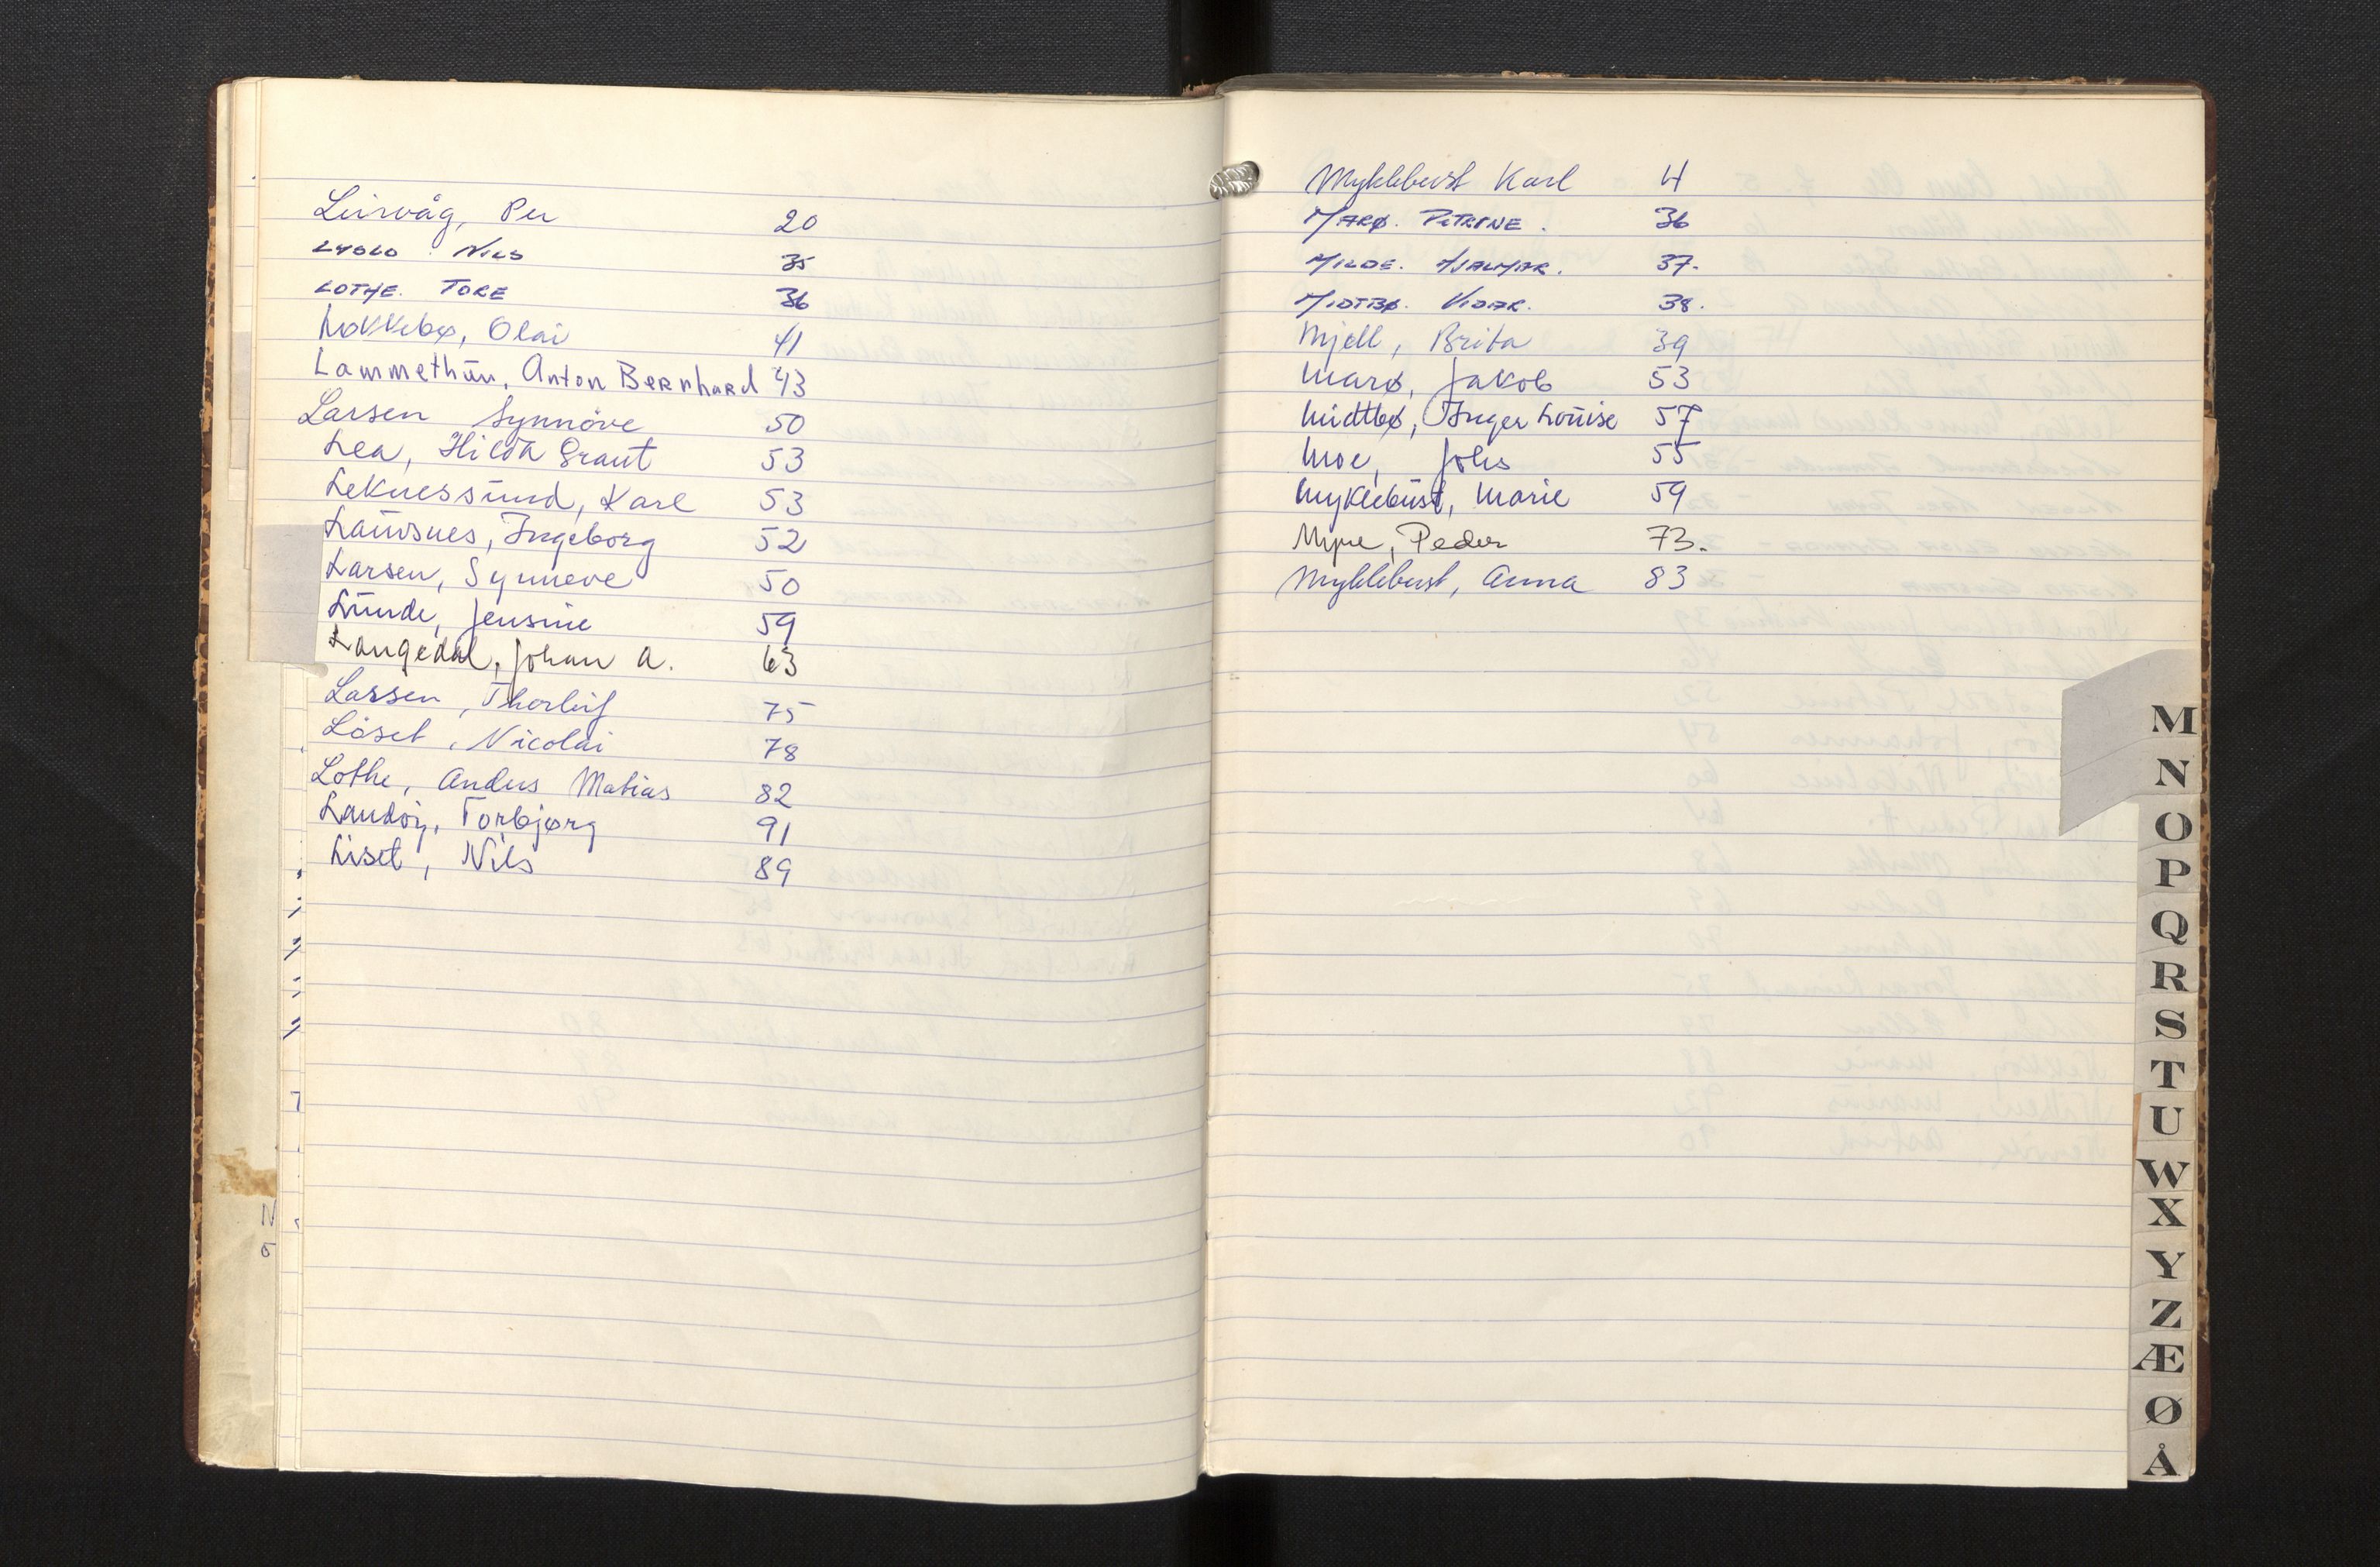 Leirvåg, Per 20
LYDLO NILS 35
LOTHE. TORE 36
Løkkebø, Olai 41
Lammethün, Anton Bernhard 43
Larsen Synnöve 50
Lea, Hilda Graut 53
Leknessund, Karl 53
Lauvsnes, Ingeborg 52
Larsen, Synneve 50
Lunde, Jensine 59
Langedal, Johan A. 63
Larsen, Thorleif 75
Löset, Nicolai 78
Lothe, Anders Matias 82
Landöy, Torbjørg 91
Liset, Nils 89
Myklebust Karl 4
MARØ. PETRINE. 36
MILDE. HJALMAR. 37.
MIDTBØ. VIDAR. 38.
Mjell, Brita 39
Marø, Jakob 53
Midtbø, Inger Louise 57
Moe, Johs 55
Myklebust, Marie 59
Myre, Peder 73.
Myklebust, Anna 83
M
N
O
P
Q
R
S
T
U
W
X
Y
Z
Æ
Ø
Å